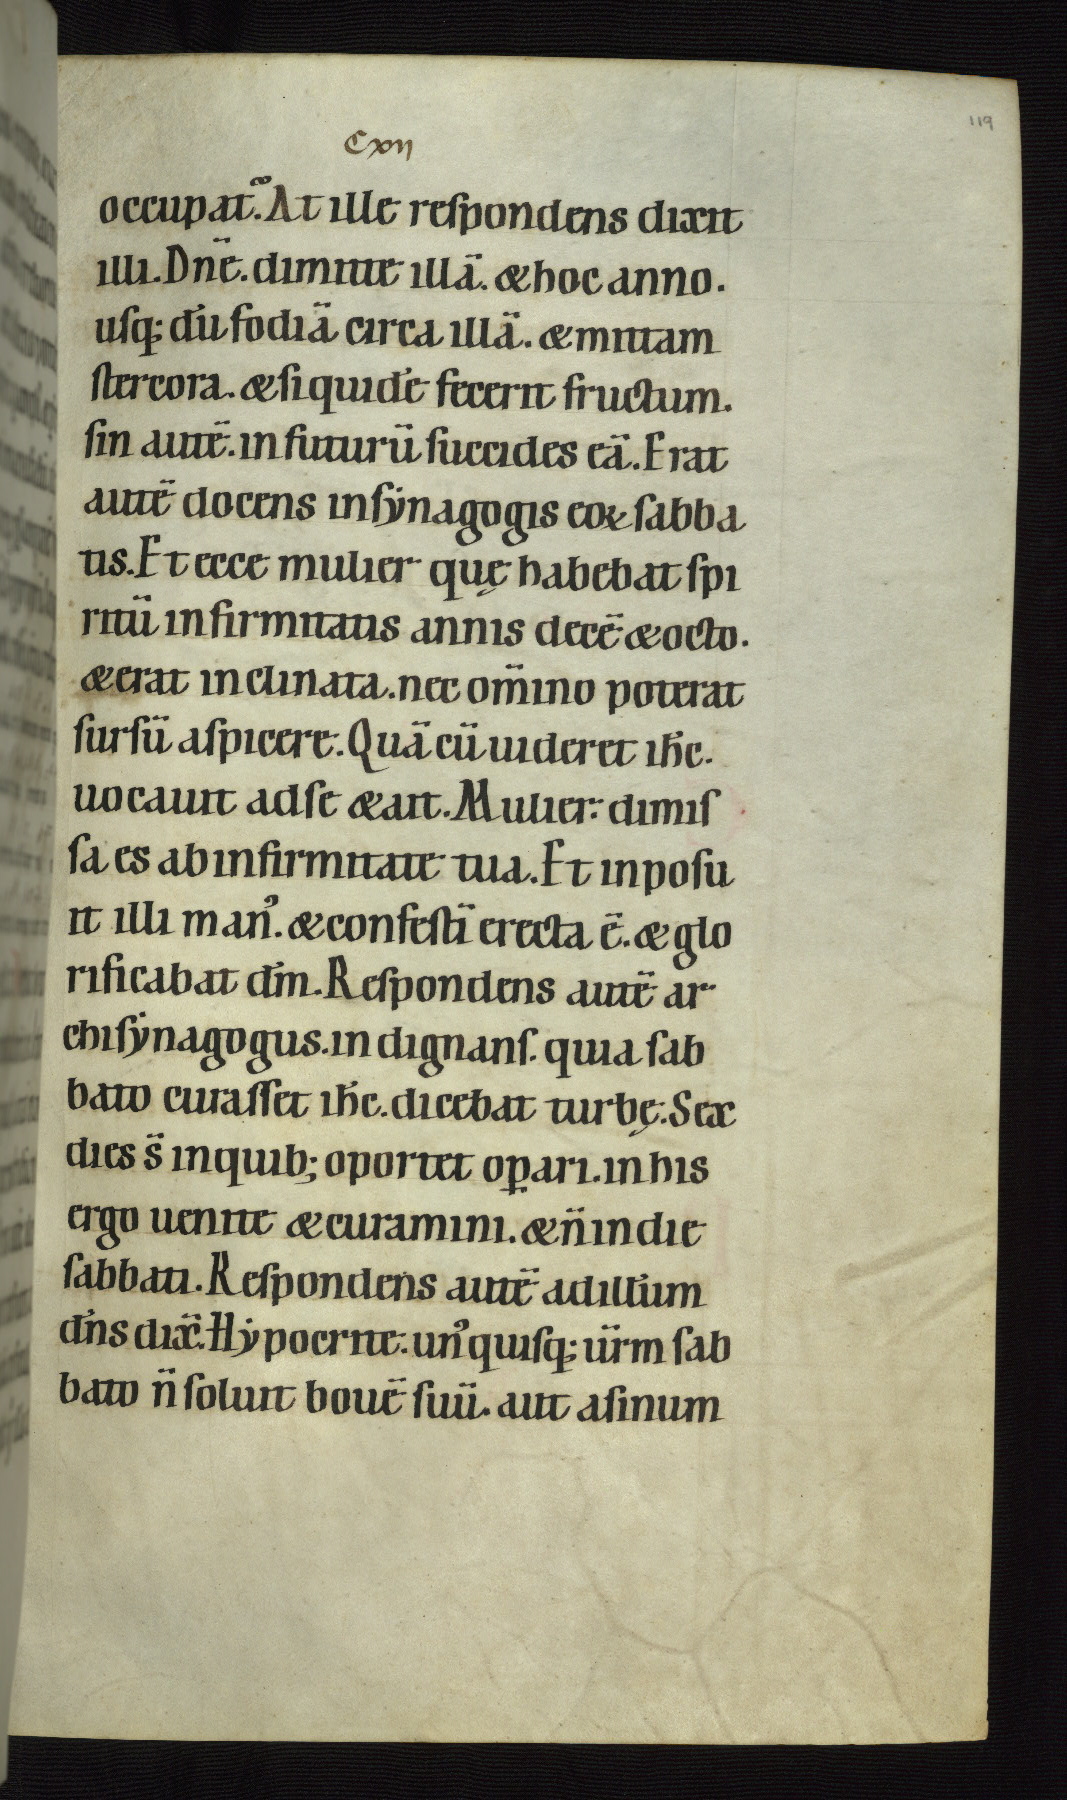 119
Cxii
occupat᷑. At ille reſpondens dixit
illi. Dnē. dimitte illā. & hoc anno.
uſq; dū fodiā circa illā. & mittam
ſtercora. & ſi quidē fecerit fructum.
ſin autē. in futurū ſuccides eā. Erat
autē docens in ſẏnagogis eoꝝ ſabba
tis. Et ecce mulier quę habebat ſpi
ritū infirmitatis annis decē & octo.
& erat inclinata. nec om̄ino poterat
ſurſū aſpicere. Quā cū uideret ih̄c.
uocauit ad ſe & ait. Mulier: dimiſ
ſa es ab infirmitate tua. Et inpoſu
it illi man᾿. & confeſtī erecta ē. & glo
rificabat dm̄. Reſpondens autē ar
chiſẏnagogus. indignanſ. quia ſab
bato curaſſet ih̄c. dicebat turbę. Sex
dies s̄ in quib; oportet oꝑari. in his
ergo uenite & curamini. & n̄ in die
ſabbati. Reſpondens autē ad illum
dn̄s dix̄. Hẏpocrite: un᾿quiſq; ūrm ſab
bato n̄ ſoluit bouē ſuū. aut aſinum